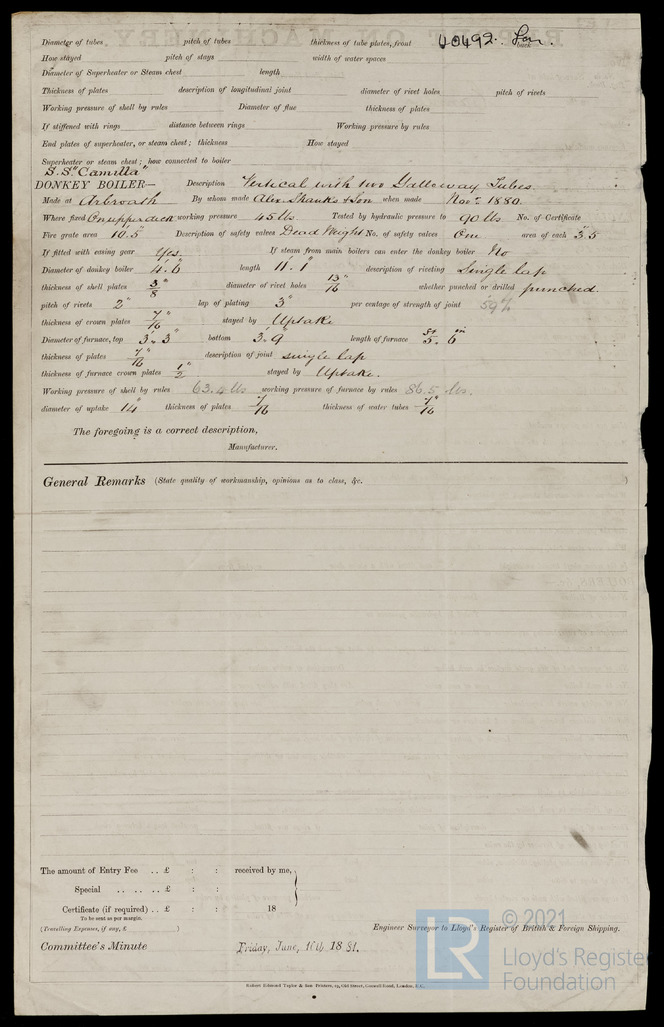 40492. Lon.
Diameter of tubes pitch of tubes thickness of tube plates, front back
How stayed pitch of stays width of water spaces
Diameter of Superheater or Steam chest length
Thickness of plates description of longitudinal joint diameter of rivet holes pitch of rivets
Working pressure of shell by rules Diameter of flue thickness of plates
If stiffened with rings distance between rings Working pressure by rules
End plates of superheater, or steam chest; thickness How stayed
Superheater or steam chest; how connected to boiler
S.S. "Camilla"
DONKEY BOILER— Description Vertical with two Galloway Tubes
Made at Arbroath By whom made Alex. Shanks & Son when made Novr. 1880.
Where fixed On upper deck working pressure 45 lbs. Tested by hydraulic pressure to 90 lbs. No. of Certificate
Fire grate area 10.5 Description of safety valves Dead Weight No. of safety valves One area of each 3.5
If fitted with easing gear Yes If steam from main boilers can enter the donkey boiler No
Diameter of donkey boiler 4'.6" length 11'.1" description of riveting Single lap
thickness of shell plates 3/8" diameter of rivet holes 13/16" whether punched or drilled punched.
pitch of rivets 2" lap of plating 3" per centage of strength of joint 59%
thickness of crown plates 7/16" stayed by Uptake
Diameter of furnace, top 3'.3" bottom 3'.9" length of furnace 5ft.6in
thickness of plates 7/16" description of joint single lap
thickness of furnace crown plates 1/2" stayed by Uptake.
Working pressure of shell by rules 63.4 lbs working pressure of furnace by rules 86.5 lbs.
diameter of uptake 14" thickness of plates 7/16 thickness of water tubes 7/16"
The foregoing is a correct description,
Manufacturer.
General Remarks (State quality of workmanship, opinions as to class, &c. )
The amount of Entry Fee .. £ : : received by me,
Special .. .. .. £ : :
Certificate (if required) .. £ : : 18
To be sent as per margin.
(Travelling Expenses, if any, £ )
Engineer Surveyor to Lloyd's Register of British & Foreign Shipping.
Committee's Minute Friday, June, 18 81.
Robert Edmund Taylor & Son Printers, 19, Old Street, Goswell Road, London, E.C.
LR
© 2021
Lloyd's Register
Foundation